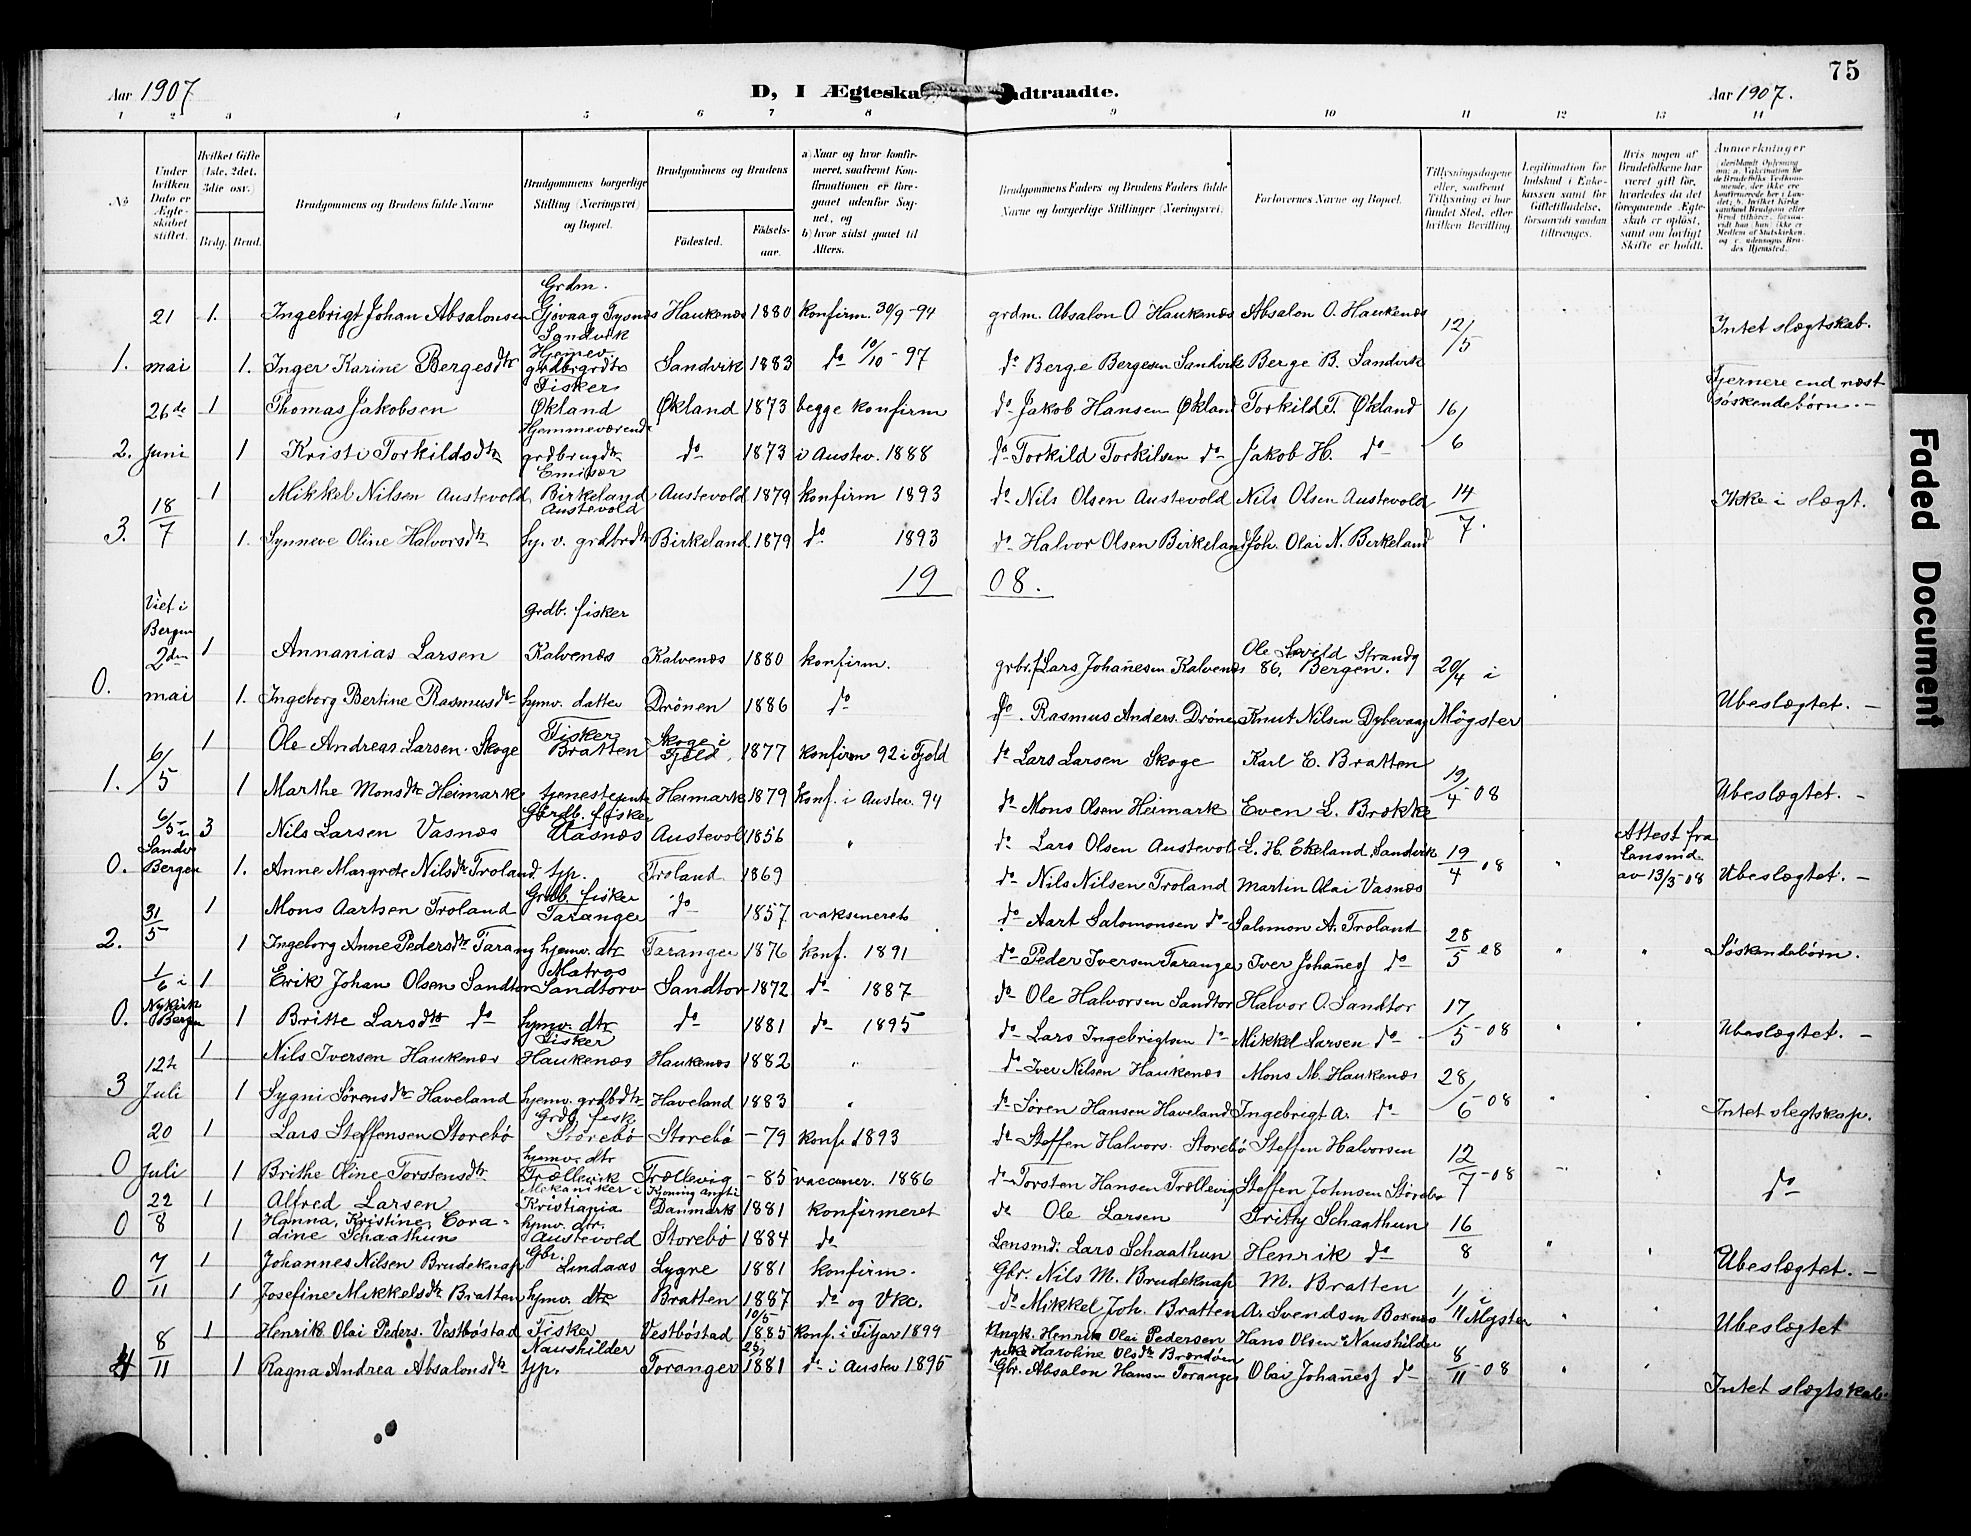 75
Aar 1907
D, I Ægteska
dtraadte.
Aar 1907.
1 2 3 4 5 6 7 8 9 10 11 12 13 14
No
Under hvilken Dato er Ægteskabet stiftet.
Hvilket Gifte (1ste, 2det, 3die osv.)
Brdg. Brud.
Brudgommens og Brudens fulde Navne
Brudgommens borgerlige Stilling (Næringsvei) og Bopæl.
Brudgommens og Brudens
Födested.
Födselsaar.
a) Naar og hvor konfirmeret, saafremt Konfirmationen er foregaaet udenfor Sognet, og
b) hvor sidst gaaet til Alters.
Brudgommens Faders og Brudens Faders fulde Navne og borgerlige Stillinger (Næringsvei).
Forlovernes Navne og Bopæl.
Tillysningsdagene eller, saafremt Tillysning ei har fundet Sted, efter hvilken Bevilling.
Legitimation for Indskud i Enkekassen samt for Giftetilladelse, forsaavidt saadan tiltrænges.
Hvis nogen af Brudefolkene har været gift før, hvorledes da det foregaaende Ægteskab er opløst, samt om lovligt Skifte er holdt.
Anmerkninger
21 1. Ingebrigt Johan Absalonsen Grdm. Gjøvaag Tysnes Haukenæs 1880 konfirm. 30/9-94 grdm. Absalon O Haukenæs Absalon O. Haukenæs 12/5 Intet slægtskab.
1. mai 1. Inger Karine Bergesdtr Sandvik Hjemev. grdbrgrdtr Sandvik 1883 do 10/10-97 do Berge Bergesen Sandvik Berge B. Sandvik
26de 1 Thomas Jakobsen Fisker Økland Økland 1873 begge konfirm do Jakob Hansen Økland Torkild T. Økland 16/6 Fjernere end næst søskendebørn.-
2. Juni 1 Kristi Torkildsdtr Hjemmeværende grdbrugdtr do 1873 i Austev. 1888 do Torkild Torkilsen do Jakob H. do
18/7 1 Mikkel Nilsen Austevold Birkeland Austevold Austevold 1879 konfirm 1893 do Nils Olsen Austevold Nils Olsen Austevold 14/7. Ikke i slægt.
3. 1. Synneve Oline Halvorsdtr hj. v. grdbrdtr Birkeland 1879 do 1893 do Halvor Olsen Birkeland Joh. Olai N. Birkeland
19 08.
Viet i Bergen 2den 1 Annanias Larsen Grdb. fisker Kalvenæs Kalvenæs 1880 konfirm. grbr.f Lars Johannesen Kalvenæs Ole Strandg 86, Bergen. 20/4 i
0. mai 1. Ingeborg Bertine Rasmusdtr hjmv. datter Drönen 1886 do do. Rasmus Anders. Drönen Knut Nilsen Dybevaag Møgster Ubeslægtet. -
6/5 1 Ole Andreas Larsen Skoge Fisker Bratten Skoge i Fjeld 1877 konfirm 92 i Fjeld do Lars Larsen Skoge Karl E. Bratten 19/4-08
1. 1 Marthe Monsdtr Heimark tjenestejente Heimark 1879 konf. i Austev. 94 do Mons Olsen Heimark Even L. Brække Ubeslægtet. -
6/5 i Sandv. Bergen 3 Nils Larsen Vasnæs Gbrdb. fisker Vasnæs Austevold 1856 " do Lars Olsen Austevol L. H. Ekeland, Sandvik 19/4 08 " Attest fra Lensmd. av 13/3-08
0. 1. Anne Margrete Nilsdtr Troland typ. Troland 1869 do Nils Nilsen Troland Martin Olai Vasnæs Ubeslægtet. -
31/5 1 Mons Aartsen Troland Grdb. fisker Taranger do 1857 vaksineret do Aart Salomonsen do Salomon A. Troland 28/5 08
2. 1 Ingeborg Anne Pedersdtr Tarang hjemv. dtr Taranger 1876 konf. 1891 do Peder Iversen Taranger Iver Johannes do " " Søskendebørn.
1/6 i Nykirk Bergen 1 Erik Johan Olsen Sandtor Matros Sandtorv Sandtor 1872 do 1887 do Ole Halvorsen Sandtor Halvor O. Sandtor 17/5-08
0. 1 Britte Larsdtr do hjmv. dtr do 1881 do 1895 do Lars Ingebrigtsen do Mikkel Larsen do " " Ubeslægtet. -
12te 1 Nils Iversen Haukenæs Fisker Haukenæs Haukenæs 1882 " do Iver Nilsen Haukenæs Mons M. Haukenæs 28/6-08
3 Juli 1 Sygni Sörensdtr Haveland hjemv. grdbdtr Haveland 1883 " do Sören Hansen Haveland Ingebrigt A. do " " Intet slegtskap.
20 1 Lars Steffensen Storebö Grdb. fisk. Storebö Storebö -79 konf. 1893 do Steffen Halvors. Storebö Steffen Halvorsen 12/7-08
0 Juli 1 Brithe Oline Torstensdtr hjmv. dtr Trællevik Trællevig -85 vacciner. 1886 do Torsten Hansen Trællevig Steffen Johnsen Storebø do
22/8 1 Alfred Larsen Mekaniker i Kristiania Danmark 1881 konfirmeret do Ole Larsen Fritz Schaathun 16/8
0 1 Hanna, Kristine, Coradine Schaathun hjmv. dtr. Austevold Storebö 1884 do Lensmd. Lars Schaathun Henrik do " " Ubeslægtet. -
7/11 1 Johannes Nilsen Brudeknap Gbr. Lindaas Lygre 1881 konfirm. Gbr. Nils M. Brudeknap M. Bratten 1/11 i Møgster
0 1 Josefine Mikkelsdtr Bratten hjmv. dtr Bratten 1887 do og Vkc. do Mikkel Joh. Bratten A. Svendsen Boknes " " Ubeslægtet
8/11 1 Henrik Olai Peders. Vestbøstad Fisker Naushilder Vestbøstad 10/5 1885 konf. i Fitjar 1899 Ungk. Henrik Olai Pedersen pike Karoline Olsdtr Hans Olsen Naushilder 8/11-08
4 1 Ragna Andrea Absalonsdtr typ. Toranger 1881 do i Austev 1895 Gbr. Absalon Hansen Toranger Olai Johannes do " " Intet slægtskab
Faded Document